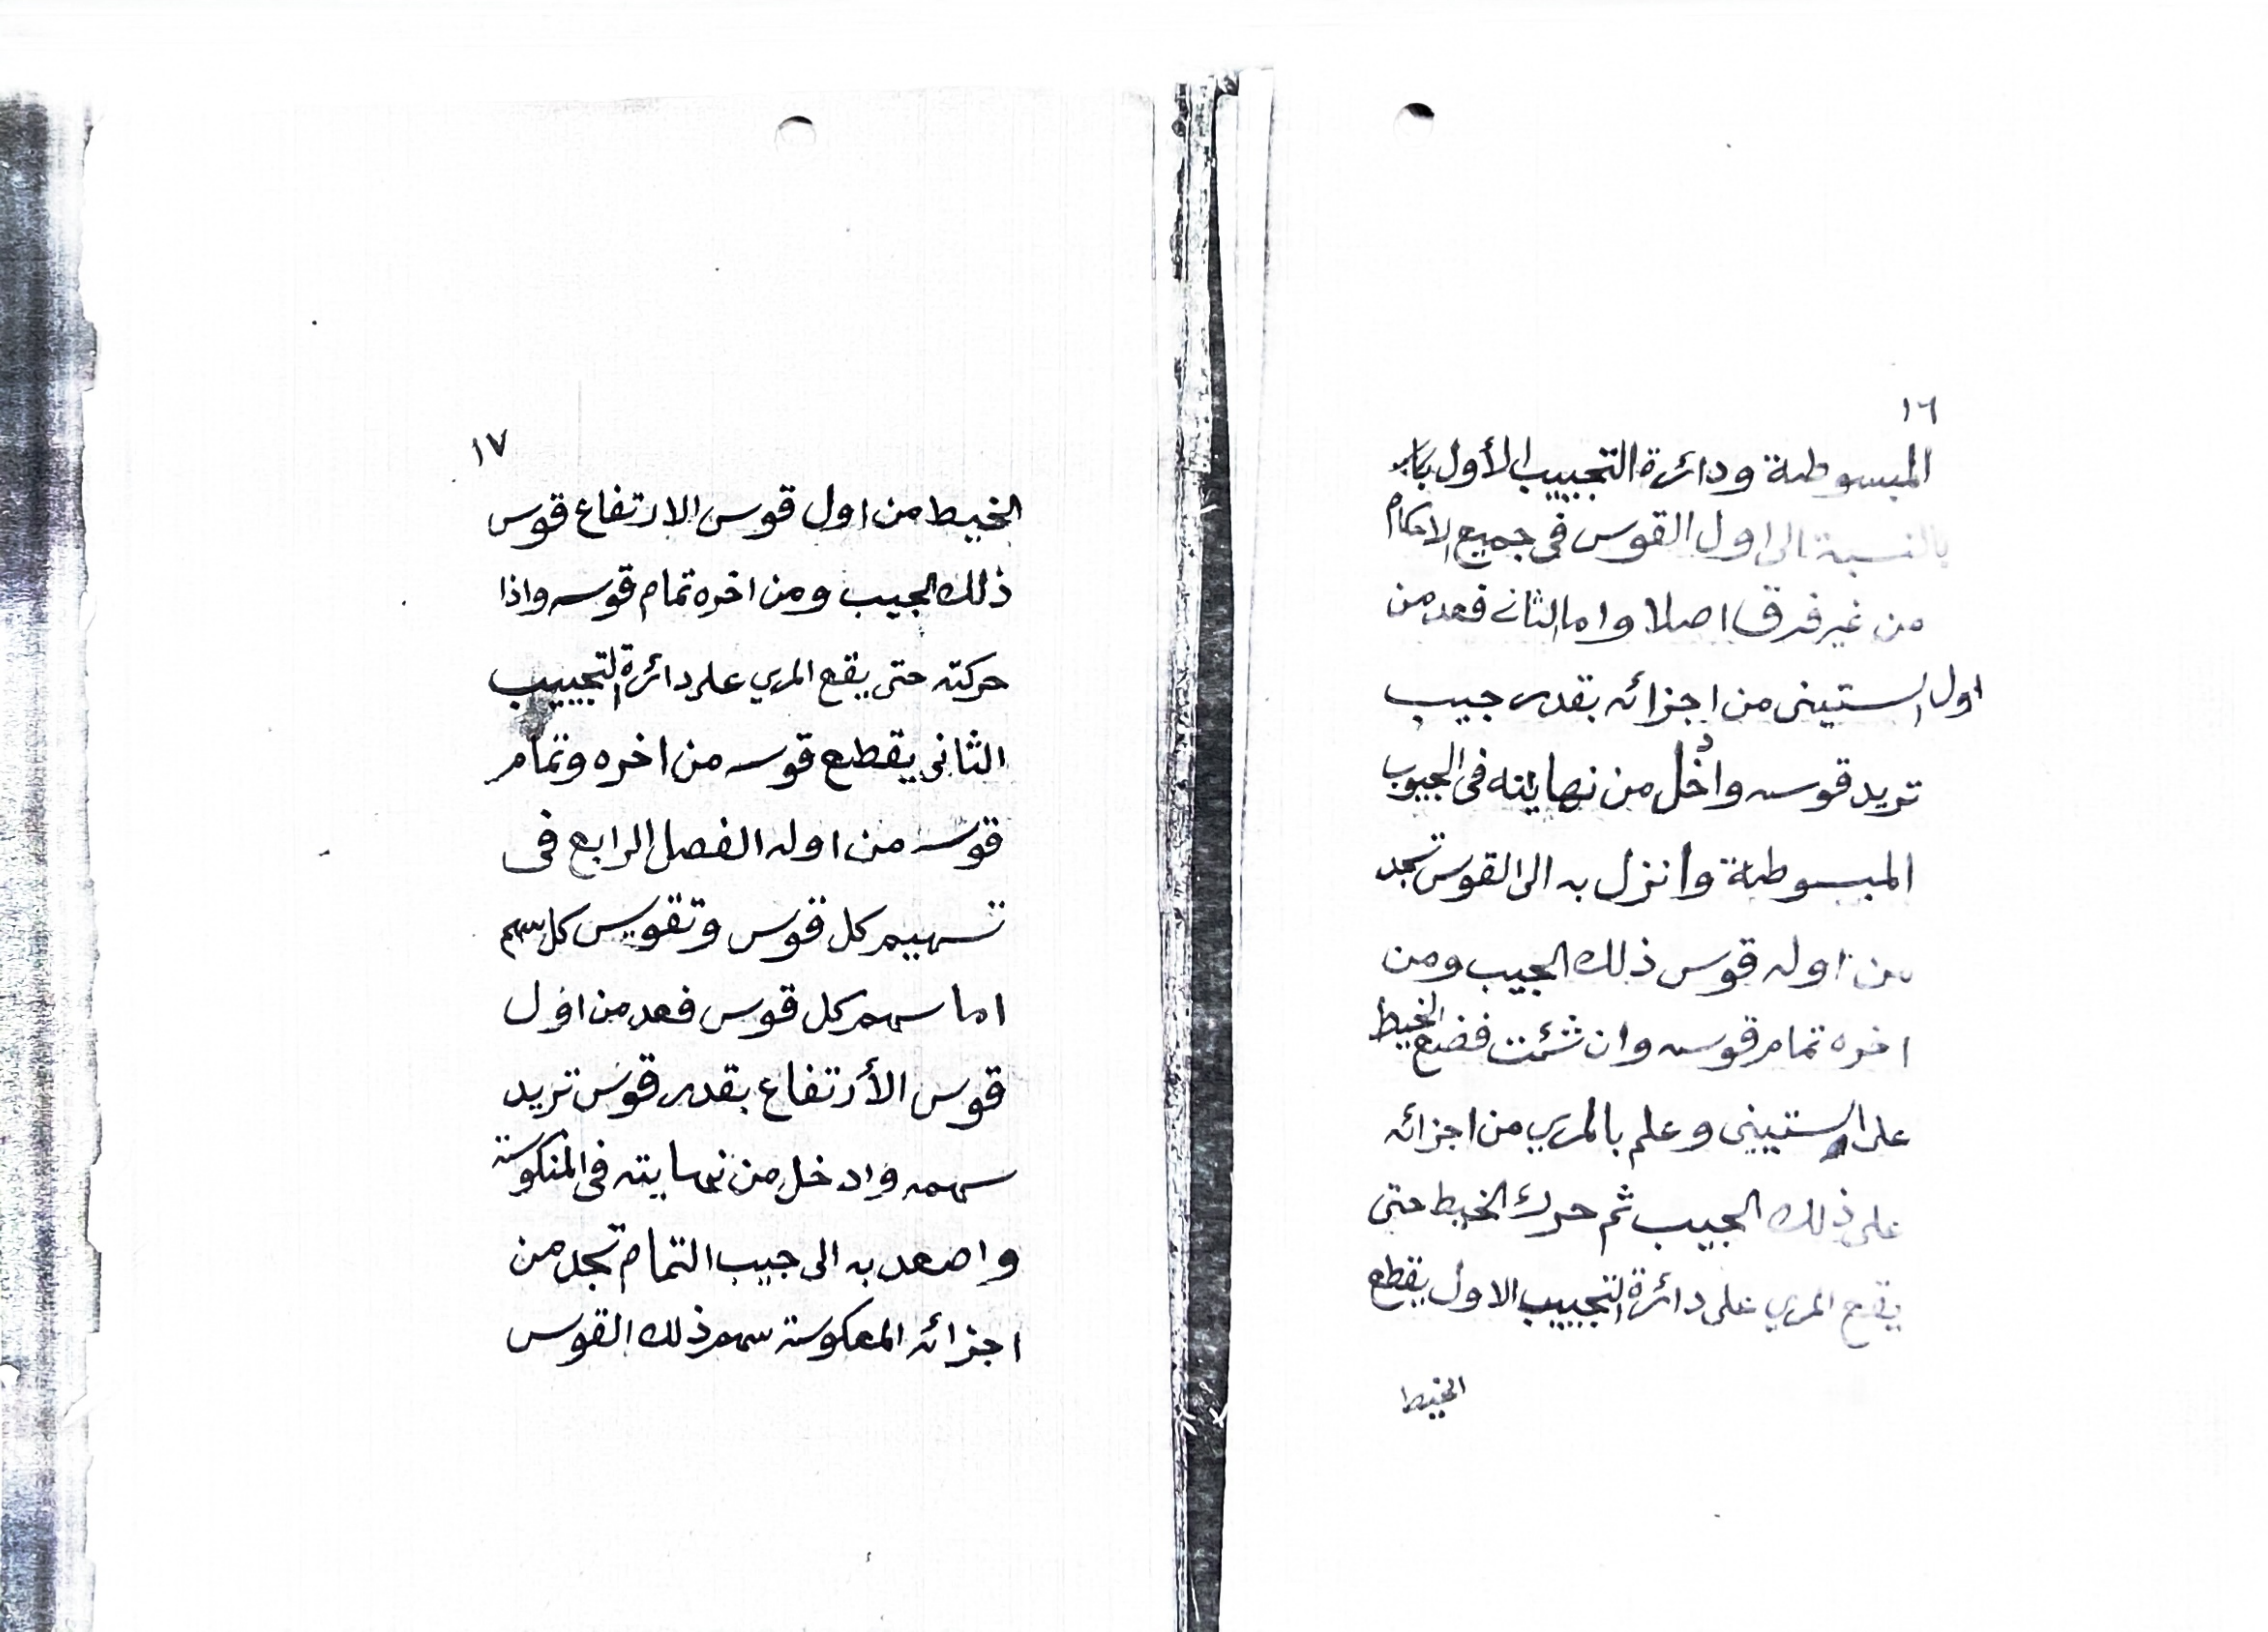 ١٦
المبسوطة ودائرة التجييب الأول
بالنسبة الى اول القوس فى جميع الاحكام
من غير فرق اصلا واما الثانى فعد من
اول الستينى من اجزائه بقدر جيب
تريد قوسه وادخل من نهايته فى الجيوب
المبسوطة وانزل به الى القوس تجد
من اوله قوس ذلك الجيب ومن
اخره تمام قوسه وان شئت فضع الخيط
على الستينى وعلم بالمرى من اجزائه
على ذلك الجيب ثم حرك الخيط حتى
يقع المرى على دائرة التجييب الاول يقطع
الخيط
١٧
الخيط من اول قوس الارتفاع قوس
ذلك الجيب ومن اخره تمام قوسه واذا
حركته حتى يقع المرى على دائرة التجييب
الثانى يقطع قوسه من اخره وتمام
قوسه من اوله الفصل الرابع فى
تسهيم كل قوس وتقويس كل سهم
اما سهم كل قوس فعد من اول
قوس الأرتفاع بقدر قوس تريد
سهمه وادخل من نهايته فى المنكوسة
واصعد به الى جيب التمام تجد من
اجزائه المعكوسة سهم ذلك القوس